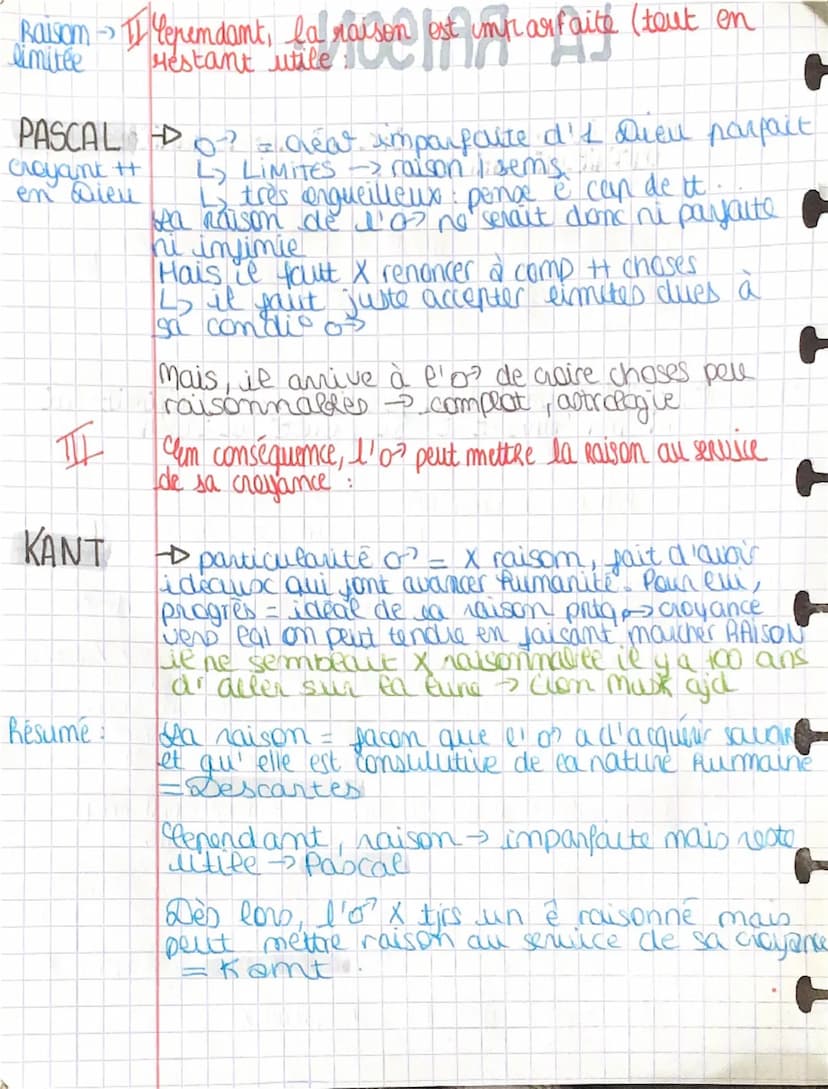 Raison → II Cependant, la raison est imparfaite (tout en
limitée restant utile :
PASCAL → ♂ = créat° imparfaite d'1 Dieu parfait
croyant ++ ↳ LIMITES → raison, sens
en Dieu ↳ très orgueilleux : pense ê cap de tt.
La raison de l'♂ ne serait donc ni parfaite
ni infinie
Mais il fautt X renoncer à comp tt choses
↳ il faut juste accepter limites dues à
sa condi° ♂
Mais, il arrive à l'♂ de croire choses peu
raisonnables → complot, astrologie
III En conséquence, l'♂ peut mettre la raison au service
de sa croyance :
KANT → particularité ♂ = X raison, fait d'avoir
idéaux qui font avancer humanité. Pour lui,
progrès = idéal de la raison pratiq → croyance
vers lql on peut tendre en faisant marcher RAISON
il ne semblait X raisonnable il y a 100 ans
d'aller sur la lune → Elon Musk ajd
Résumé : La raison = façon que l'♂ a d'acquérir savoir
et qu'elle est consulutive de la nature humaine
= Descartes
Cependant, raison → imparfaite mais reste
utile → Pascal
Dès lors, l'♂ X tjrs un ê raisonné mais
peut mettre raison au service de sa croyance
= Kant.